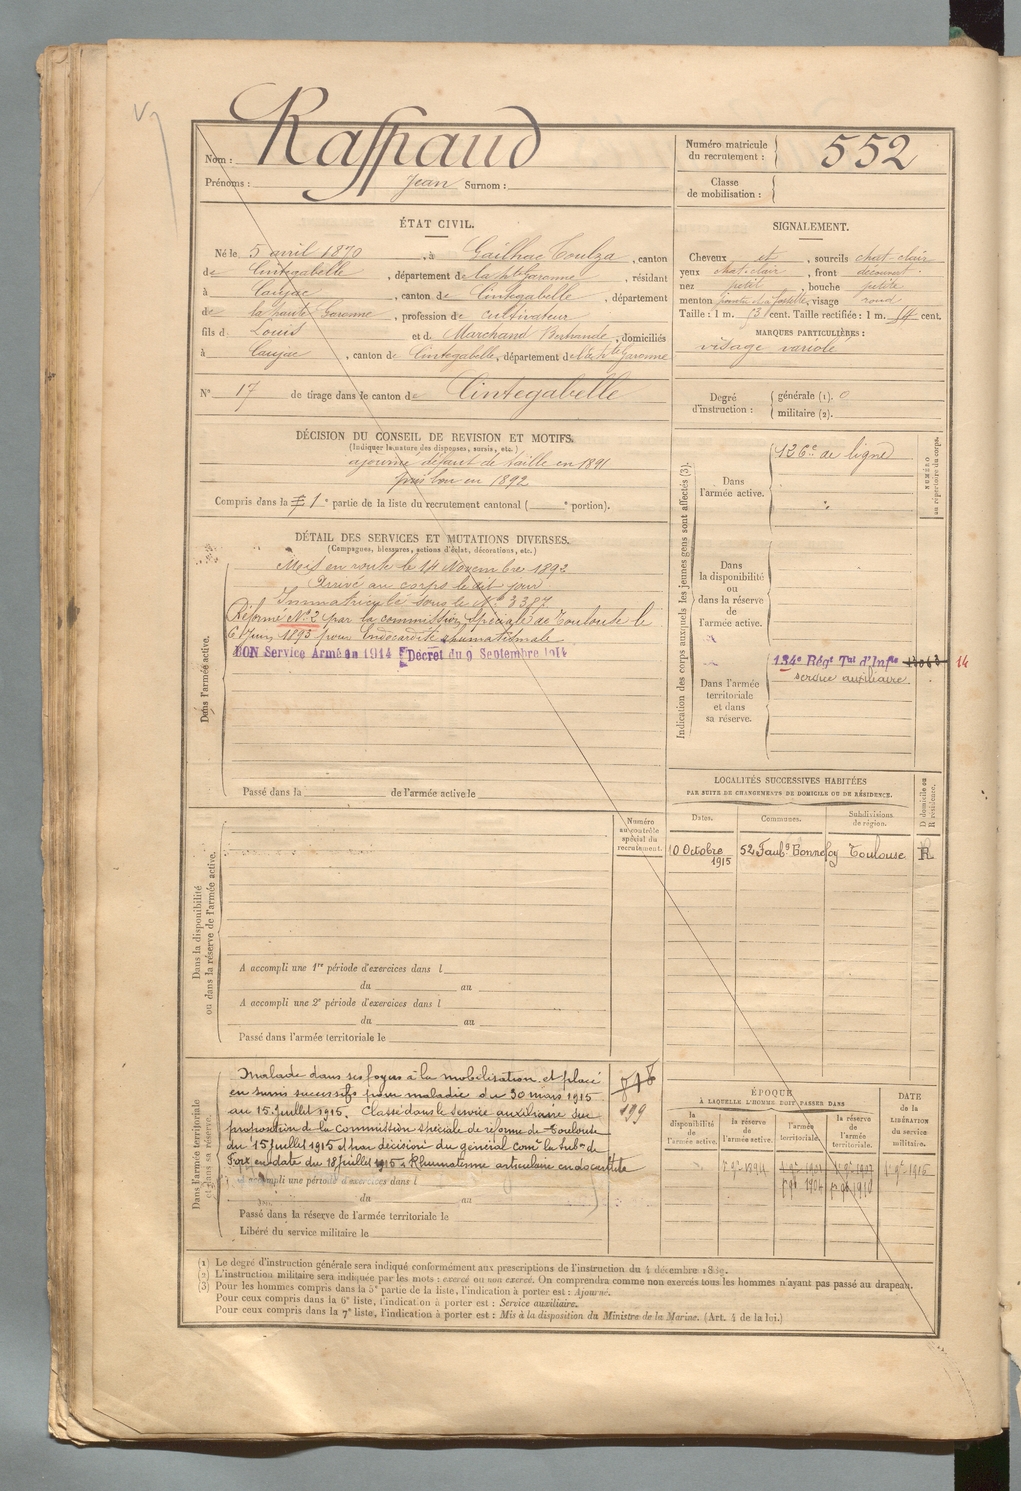 Nom : Raspaud
Prénoms : Jean Surnom :
Numéro matricule du recrutement : 552
Classe de mobilisation :
ÉTAT CIVIL.
Né le 5 avril 1870, à Gailhac Toulza, canton
de Cintegabelle, département de la hte Garonne, résidant
à Caujac, canton de Cintegabelle, département
de la haute Garonne, profession de cultivateur
fils d Louis et d Marchand Bertrande, domiciliés
à Caujac, canton de Cintegabelle, département de la hte Garonne
N° 17 de tirage dans le canton de Cintegabelle
SIGNALEMENT.
Cheveux et, sourcils chat-clair
yeux chat-clair, front découvert
nez petit, bouche petite
menton, visage rond
Taille : 1 m. 53 cent. Taille rectifiée : 1 m. 54 cent.
MARQUES PARTICULIÈRES :
visage variolé
Degré d'instruction : générale (1). 0
militaire (2).
DÉCISION DU CONSEIL DE REVISION ET MOTIFS.
(Indiquer la nature des dispenses, sursis, etc.)
ajourné défaut de taille en 1891
pris bon en 1892
Compris dans la 1e partie de la liste du recrutement cantonal ( e portion).
DÉTAIL DES SERVICES ET MUTATIONS DIVERSES.
(Campagnes, blessures, actions d'éclat, décorations, etc.)
Dans l'armée active.
Mis en route le 14 Novembre 1892
Arrivé au corps le dit jour
Immatriculé sous le N° 3387
Réformé N° 2 par la commission spéciale de Toulouse le
6 Juin 1893 pour Endocardite rhumatismale
BON Service Armé en 1914 Décret du 9 Septembre 1914
Passé dans la de l'armée active le
Indication des corps auxquels les jeunes gens sont affectés (3).
NUMÉRO au répertoire du corps.
Dans l'armée active.
126e de ligne
Dans la disponibilité ou dans la réserve de l'armée active.
Dans l'armée territoriale et dans sa réserve.
134e Régt Tal d'Infie 14
service auxiliaire
LOCALITÉS SUCCESSIVES HABITÉES
PAR SUITE DE CHANGEMENTS DE DOMICILE OU DE RÉSIDENCE.
Dates. Communes. Subdivisions de région. D domicile ou R résidence.
10 Octobre 1915 52 Faubg Bonnefoy Toulouse R
Dans la disponibilité ou dans la réserve de l'armée active.
Numéro au contrôle spécial du recrutement.
A accompli une 1re période d'exercices dans l
du au
A accompli une 2e période d'exercices dans l
du au
Passé dans l'armée territoriale le
Dans l'armée territoriale et dans sa réserve.
Malade dans ses foyers à la mobilisation et placé
en sursis successifs pour maladie du 30 mars 1915
au 15 Juillet 1915. Classé dans le service auxiliaire sur
proposition de la Commission spéciale de réforme de Toulouse
du 15 Juillet 1915 et par décision du général comt la Subon de
Foix en date du 18 Juillet 1915. Rhumatisme articulaire endocardite
199
A accompli une période d'exercices dans l
du au
Passé dans la réserve de l'armée territoriale le
Libéré du service militaire le
ÉPOQUE
À LAQUELLE L'HOMME DOIT PASSER DANS
la disponibilité de l'armée active. la réserve de l'armée active. l'armée territoriale. la réserve de l'armée territoriale. DATE de la LIBÉRATION du service militaire.
(1) Le degré d'instruction générale sera indiqué conformément aux prescriptions de l'instruction du 4 décembre 1889.
(2) L'instruction militaire sera indiquée par les mots : exercé ou non exercé. On comprendra comme non exercés tous les hommes n'ayant pas passé au drapeau.
(3) Pour les hommes compris dans la 5e partie de la liste, l'indication à porter est : Ajourné.
Pour ceux compris dans la 6e liste, l'indication à porter est : Service auxiliaire.
Pour ceux compris dans la 7e liste, l'indication à porter est : Mis à la disposition du Ministre de la Marine. (Art. 4 de la loi.)